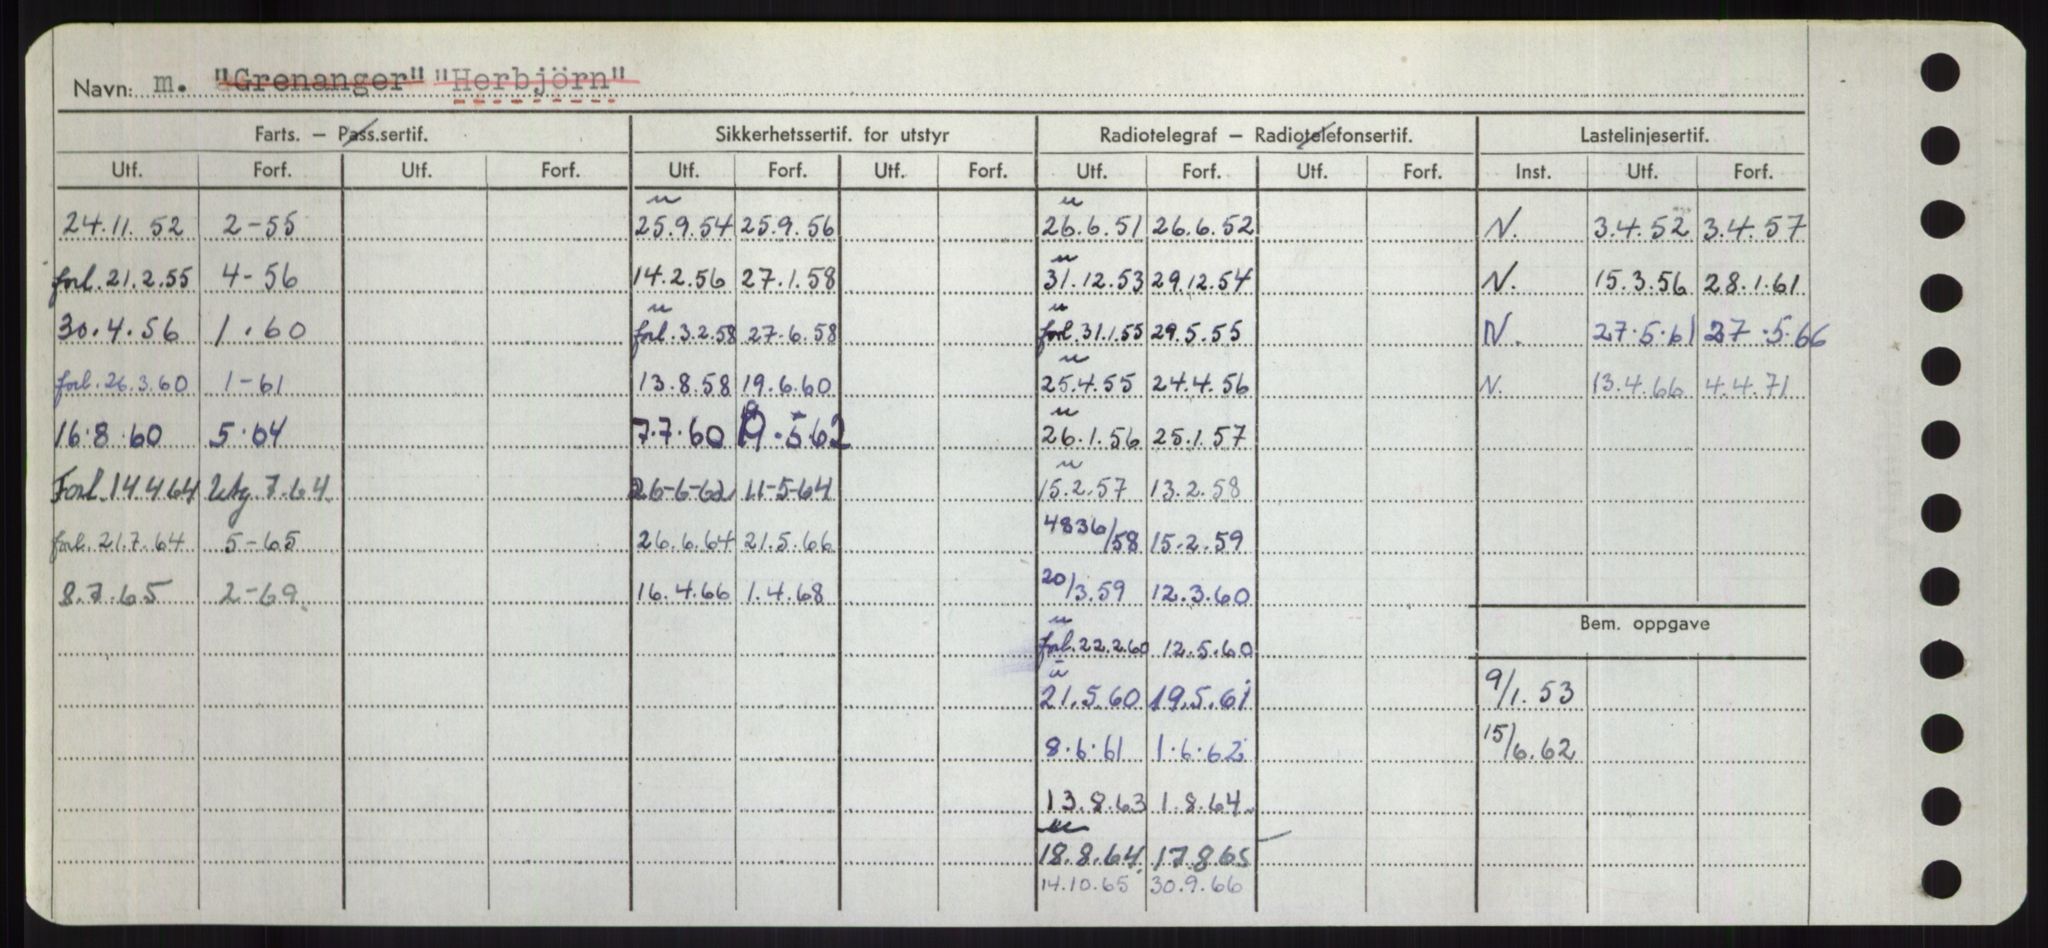 Navn: m. "Grenanger" "Herbjörn"
Farts. – Pass.sertif. Sikkerhetssertif. for utstyr Radiotelegraf – Radiotelefonsertif. Lastelinjesertif.
Utf. Forf. Utf. Forf. Utf. Forf. Utf. Forf. Utf. Forf. Utf. Forf. Inst. Utf. Forf.
24.11.52 2-55 u 25.9.54 25.9.56 u 26.6.51 26.6.52 N. 3.4.52 3.4.57
forl. 21.2.55 4-56 14.2.56 27.1.58 u 31.12.53 29.12.54 N. 15.3.56 28.1.61
30.4.56 1.60 u forl. 3.2.58 27.6.58 u forl. 31.1.55 29.5.55 N. 27.5.61 27.5.66
forl. 26.3.60 1-61 13.8.58 19.6.60 u 25.4.55 24.4.56 N. 13.4.66 4.4.71
16.8.60 5.64 7.7.60 19.5.62 u 26.1.56 25.1.57
Forl. 14.4.64 Utg. 7.64 26-6-62 11-5-64 u 15.2.57 13.2.58
forl. 21.7.64 5-65 26.6.64 21.5.66 4836/58 15.2.59
8.7.65 2-69 16.4.66 1.4.68 20/3.59 12.3.60
Bem. oppgave
u forl. 22.2.60 12.5.60
u 21.5.60 19.5.61 9/1.53
8.6.61 1.6.62 15/6.62
13.8.63 1.8.64
u 18.8.64 17.8.65
14.10.65 30.9.66